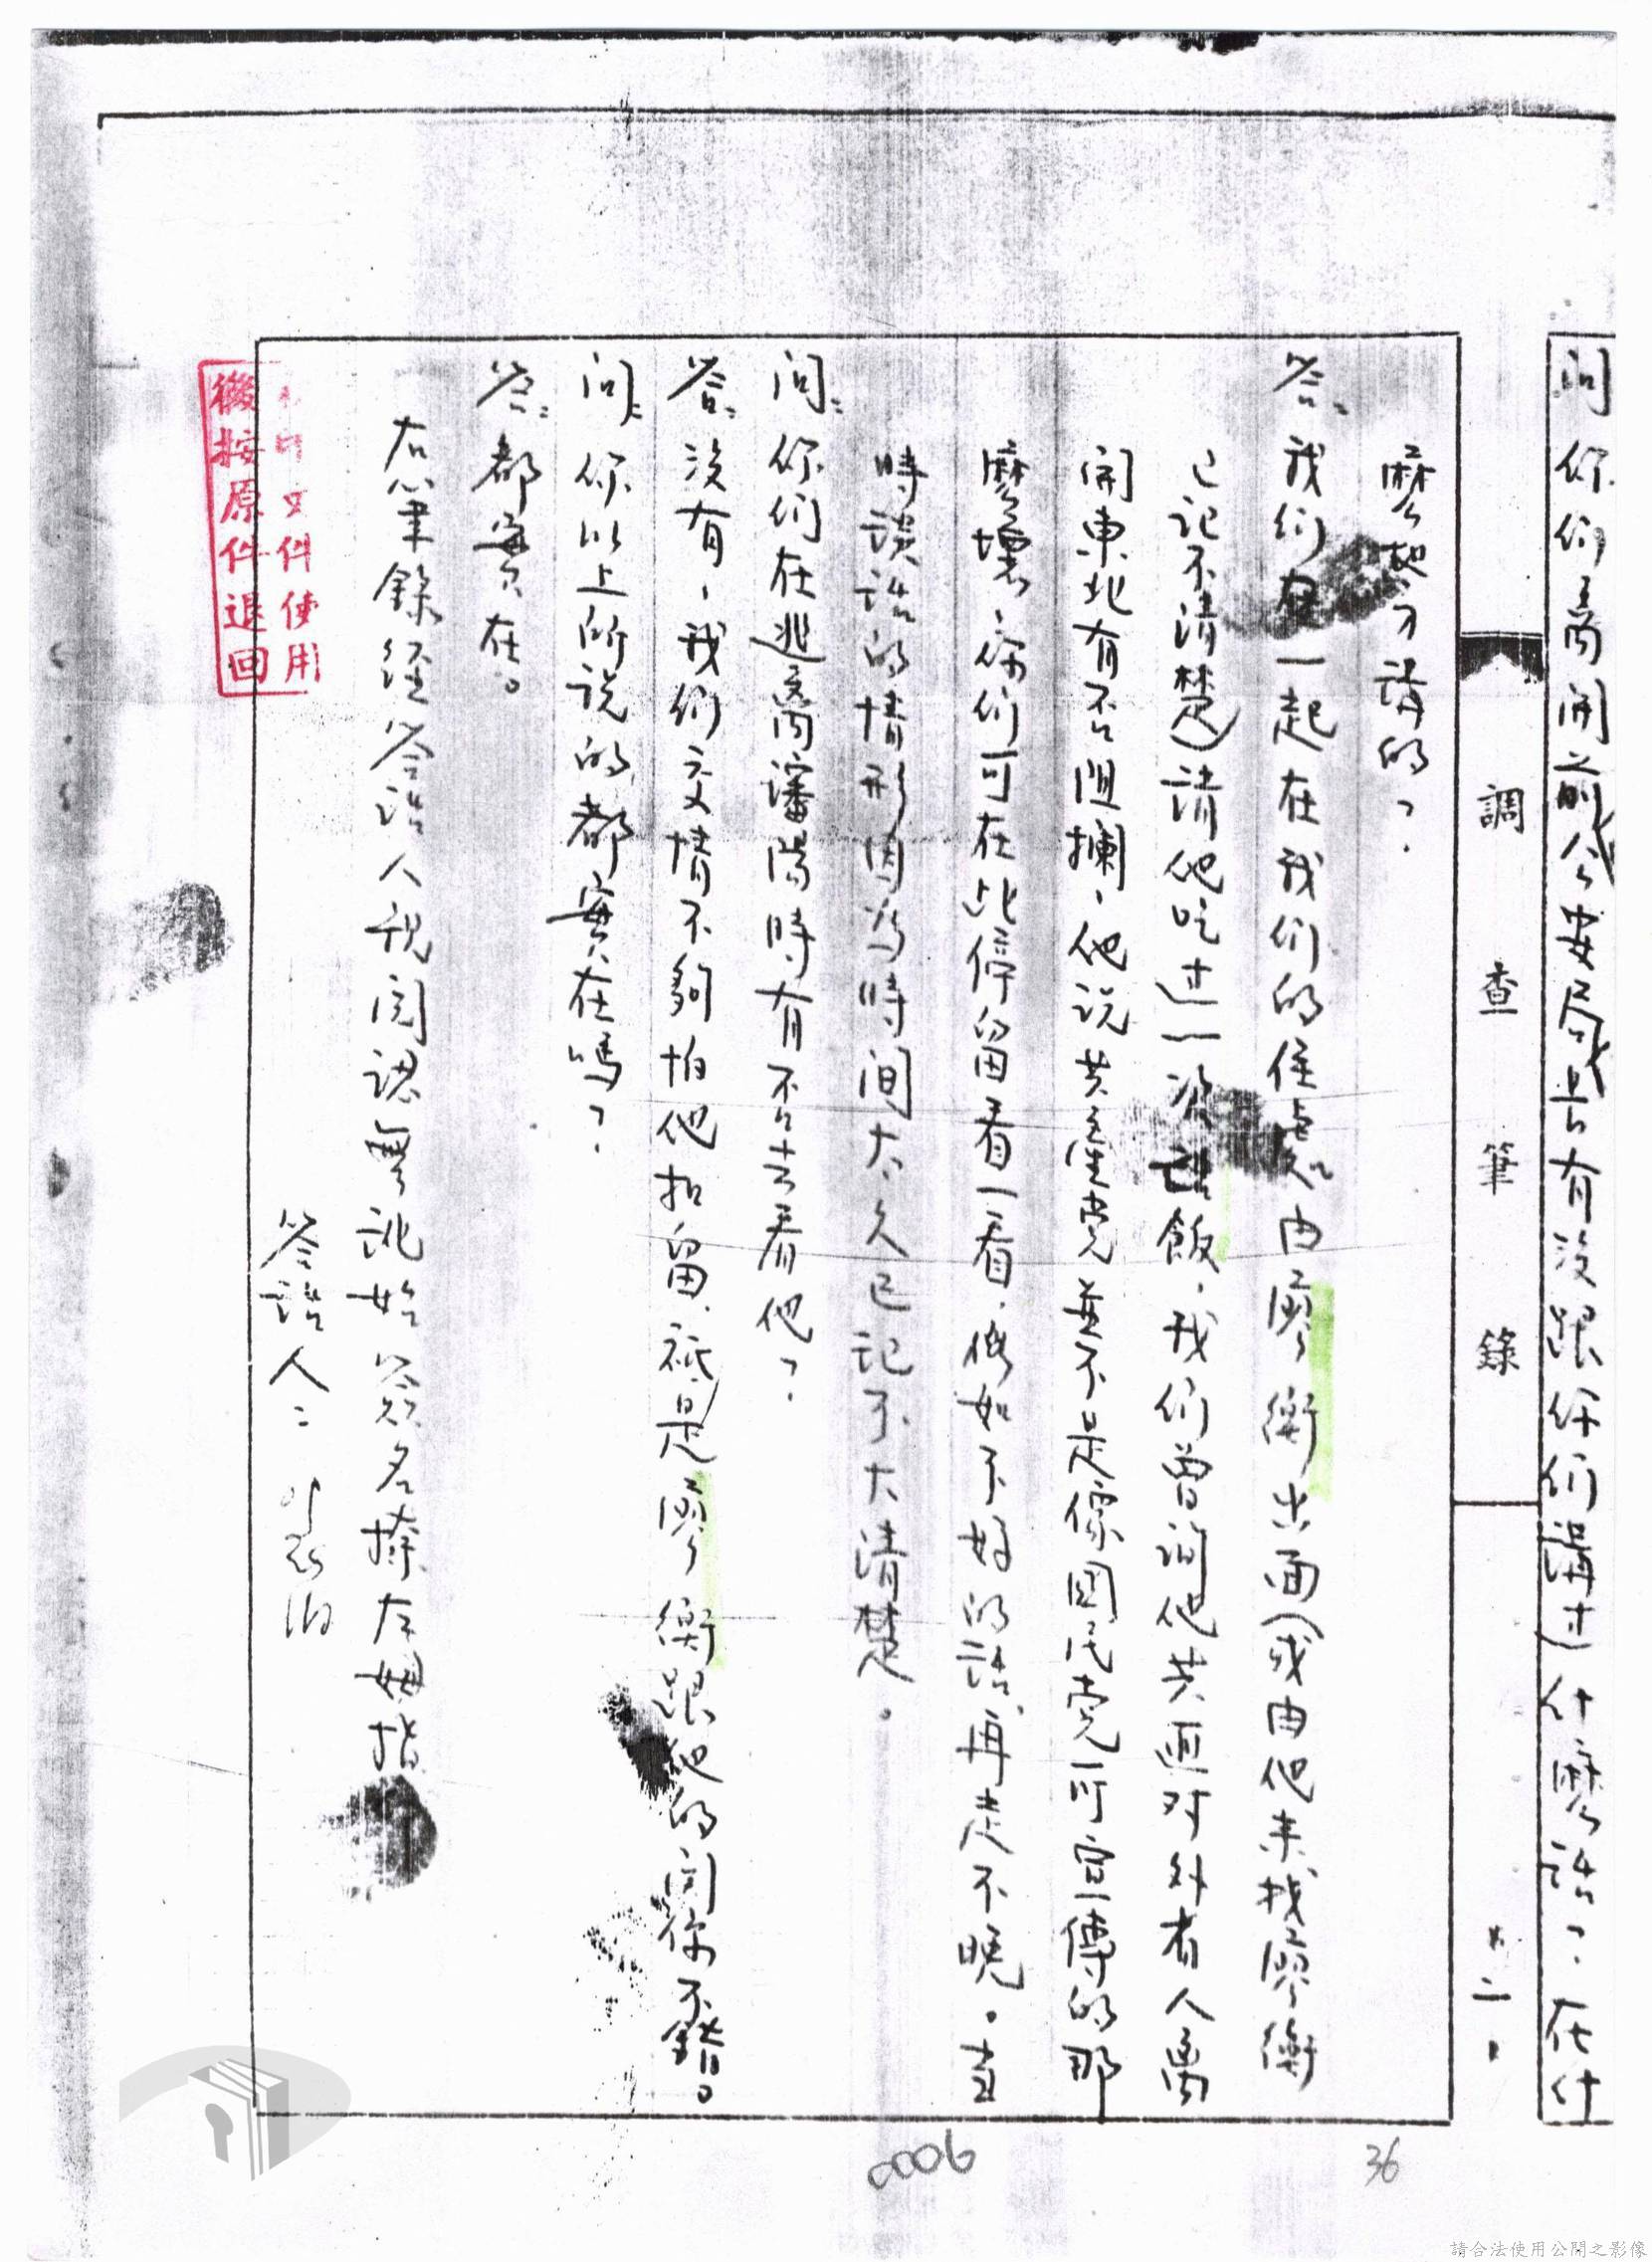 問 你们離開之前公安局長有没跟你们講过什麽話？在什
調查筆錄
二
麽地方講的？
答：我们在一起在我们的住處由廖衡出面（或由他来找廖衡
已記不清楚）請他吃过一次飯，我们曾询他共匪对外省人离
開東北有不有阻攔，他説共産党並不是像國民党所宣傳的那
麽壞，你们可在此停留看一看，假如不好的話，再走不晚。当
時談話的情形因为時间太久已記不大清楚。
问：你们在逃离瀋陽時有不有去看他？
答：没有，我们交情不夠怕他扣留，祇是廖衡跟他的関係不錯。
问：你以上所说的都實在嗎？
答：都實在。
右筆錄經答話人親閱認無訛始簽名捺左姆指
答話人：
文件使用
後按原件退回
0006
36
請合法使用公開之影像